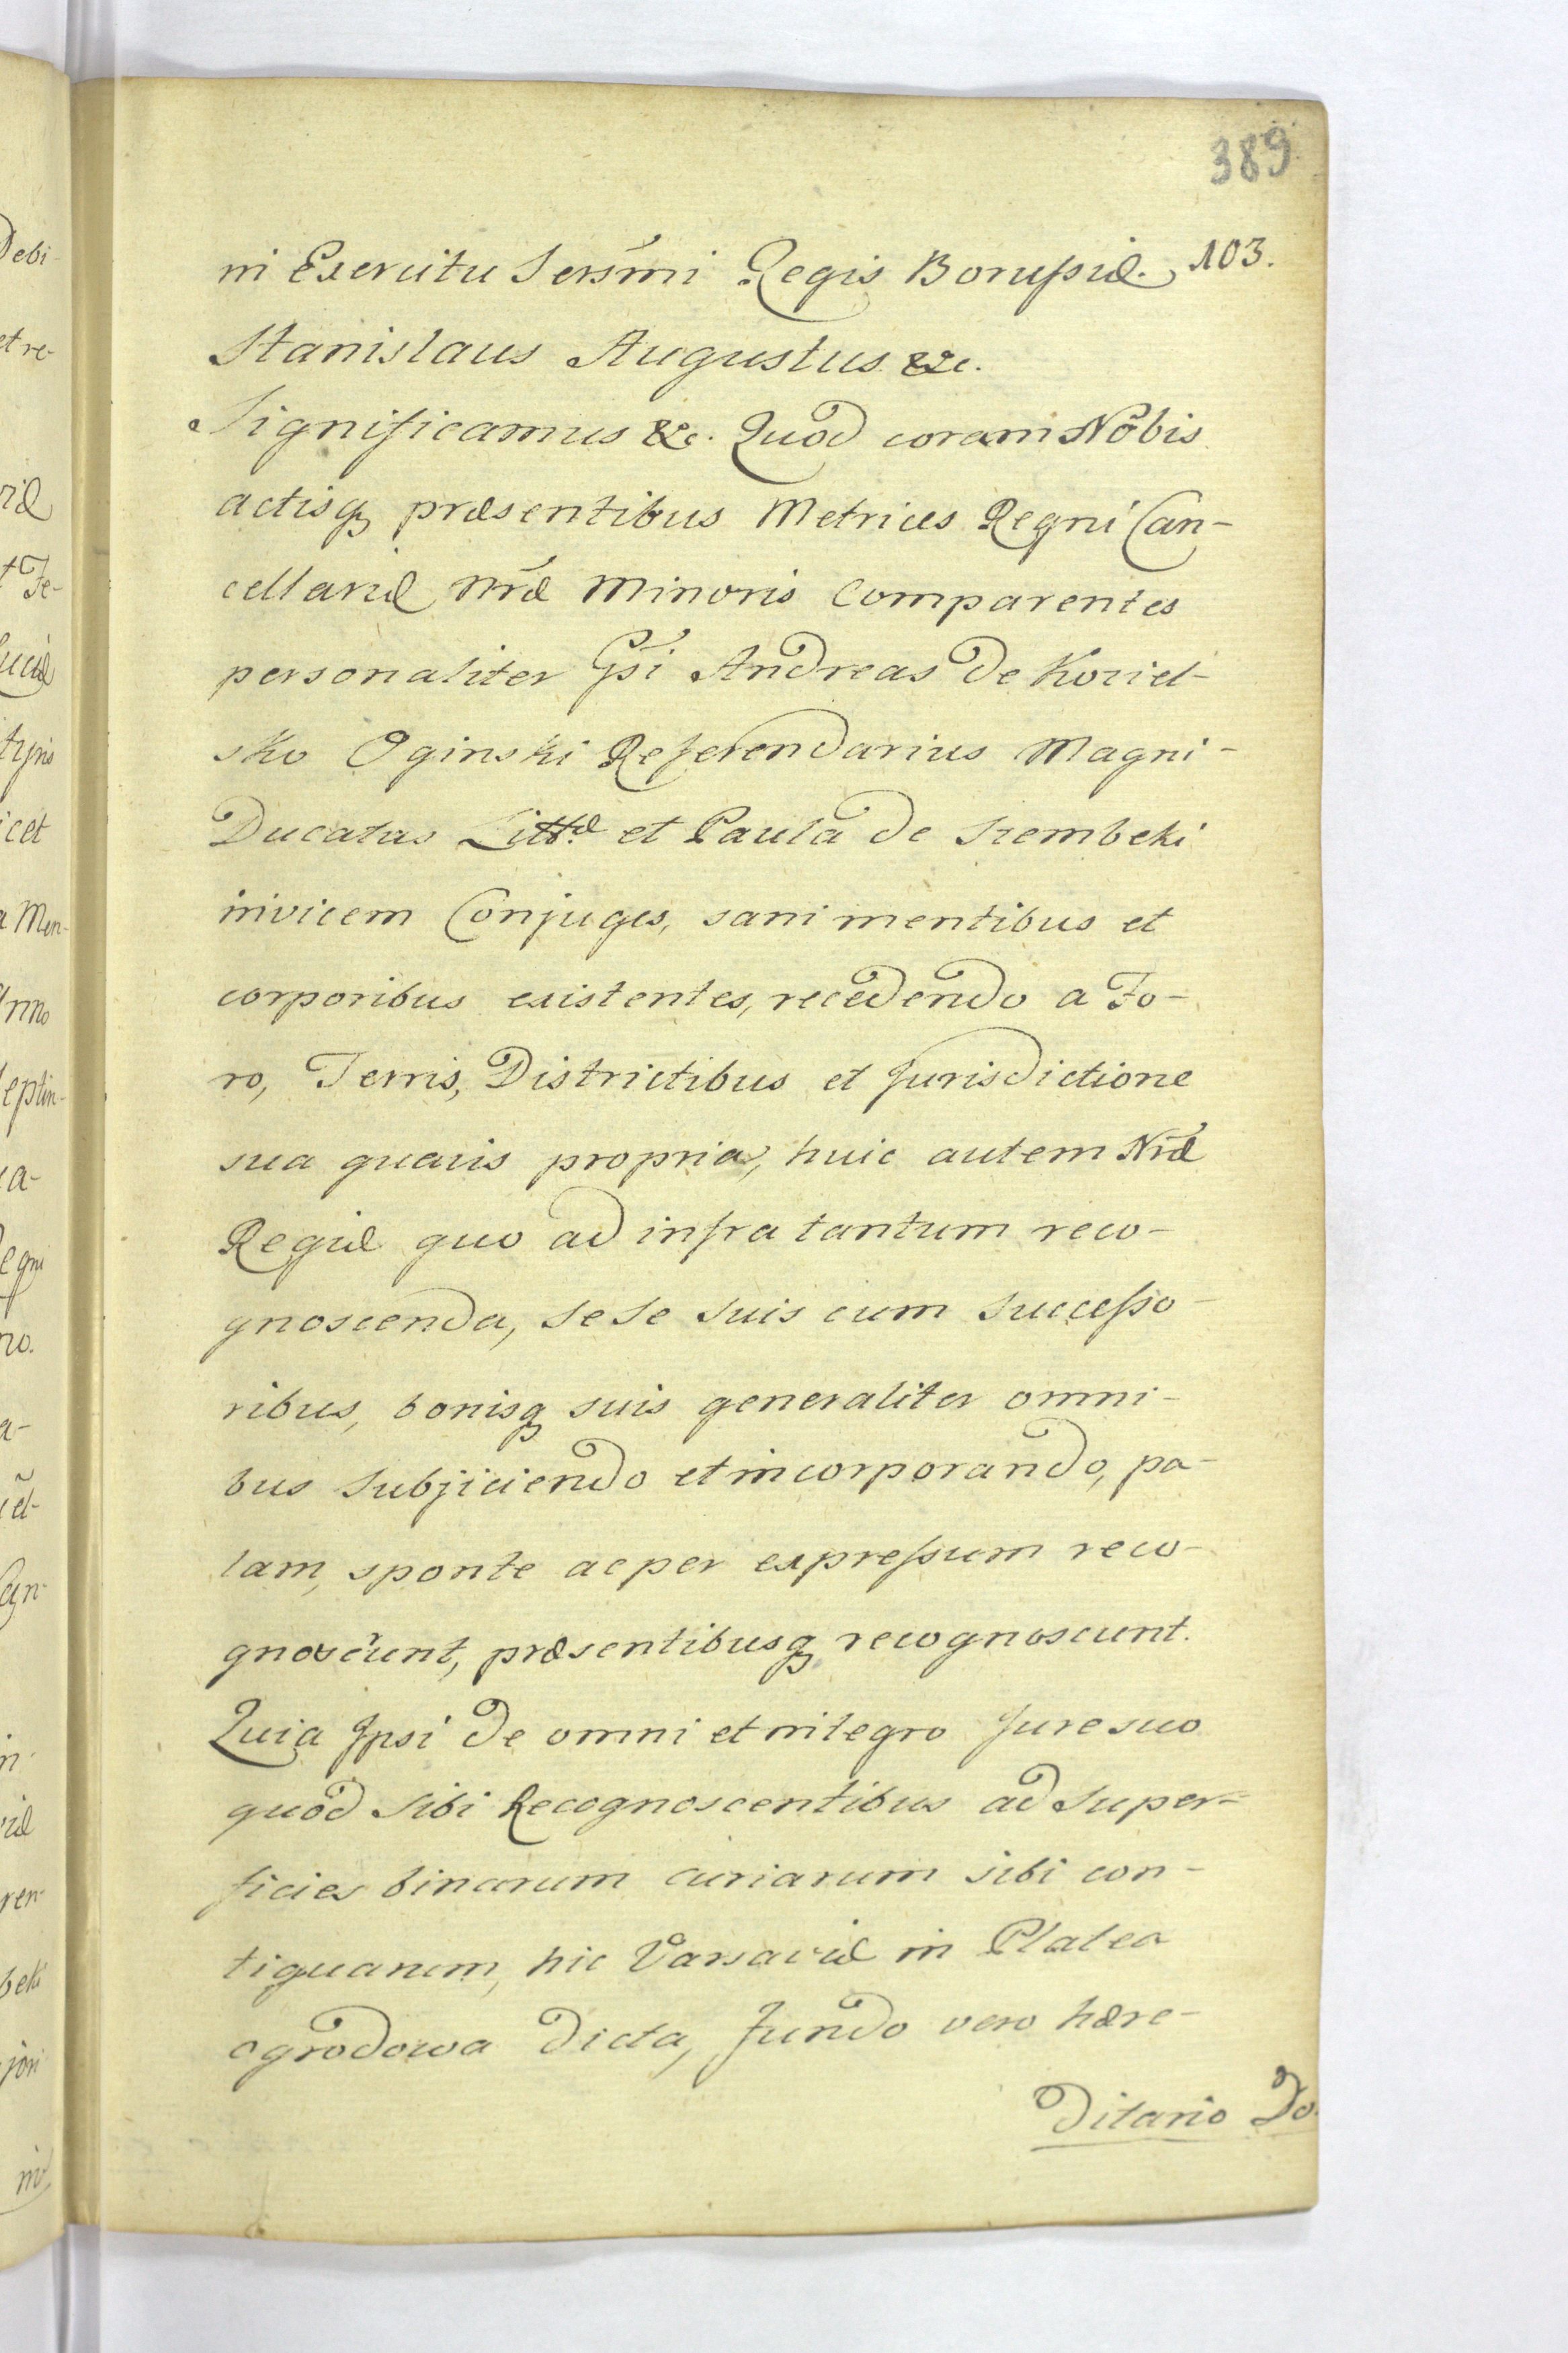 389
in Exercitu Sersm̃i Regis Borussiæ. 103.
Stanislaus Augustus &c.
Significamus &c. Quod coram Nõbis
actisq, præsentibus Metrices Regni Can-
cellariæ Nrã Minoris Comparentes
personaliter Gsĩ Andreas de Koziel-
sko Oginski Referendarius Magni-
Ducatus Littæ et Paula de Szembeki
invicem Conjuges, sani mentibus et
corporibus existentes, recedendo a Fo-
ro, Terris, Districtibus et Jurisdictione
sua quavis propria, huic autem Nrã
Regiæ quo ad infra tantum reco-
gnoscenda, sese suis cum successo-
ribus, bonisq suis generaliter omni-
bus subjiciendo et incorporando, pa-
lam, sponte ac per expressum reco-
gnoscunt, præsentibusq recognoscunt.
Quia Ipsi de omni et integro Jure suo
quod sibi Recognoscentibus ad super-
ficies binarum curiarum sibi con-
tiguarum, hic Varsaviæ in Platea
ogrodowa dicta, fundo vero hære-
ditario Do.